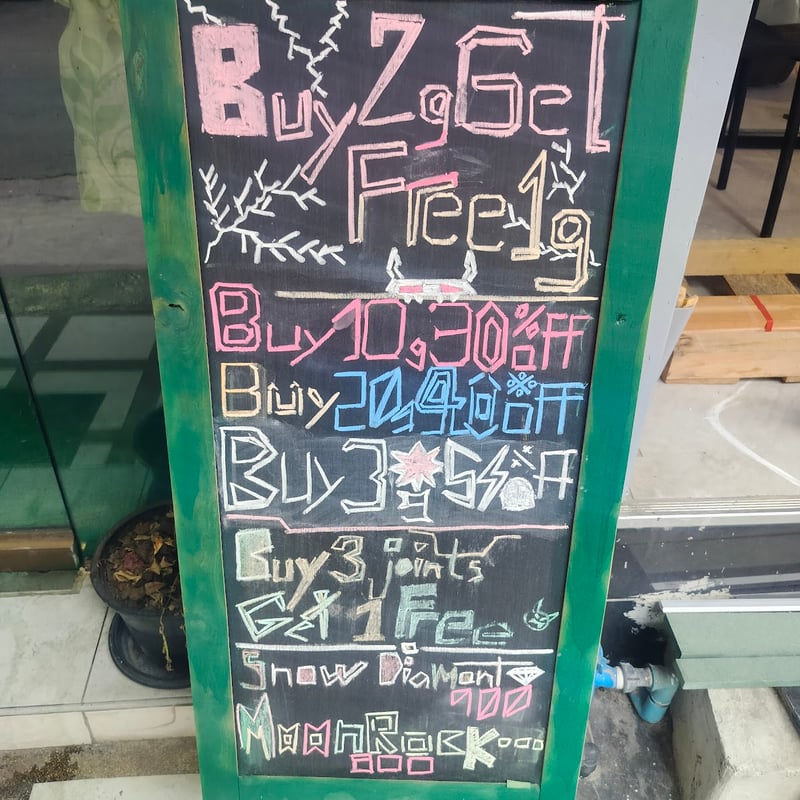 Buy 2g Get
Free 1g
Buy 10g 30% off
Buy 20g 40% off
Buy 3*g 55% off
Buy 3 joints
Get 1 Free
Snow Diamont
900
MoonRock...